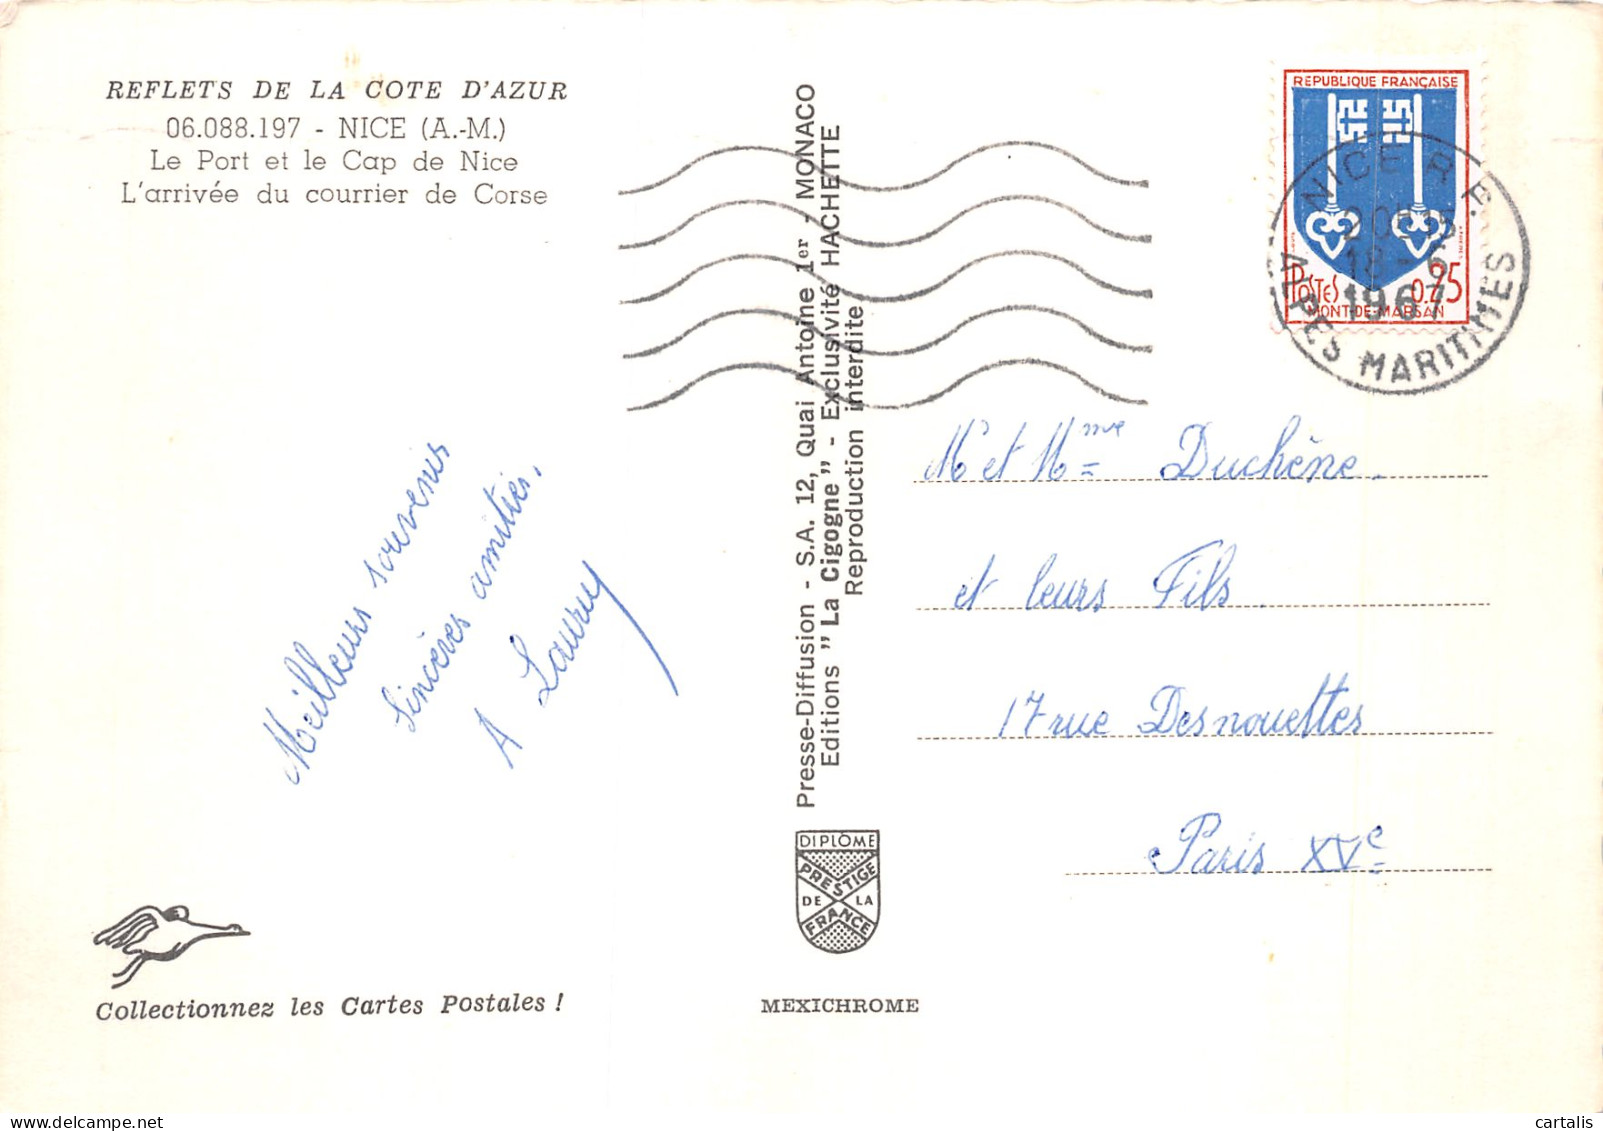 REFLETS DE LA COTE D'AZUR
06.088.197 - NICE (A.-M.)
Le Port et le Cap de Nice
L'arrivée du courrier de Corse
Meilleurs souvenirs
Sincères amitiés.
A
Collectionnez les Cartes Postales !
Presse-Diffusion - S.A. 12, Quai Antoine 1er - MONACO
Editions "La Cigogne" - Exclusivité HACHETTE
Reproduction interdite
DIPLÔME
PRESTIGE
DE LA
FRANCE
MEXICHROME
REPUBLIQUE FRANÇAISE
POSTES 0.25
MONT-DE-MARSAN
NICE R.P.
18-6
1967
ALPES MARITIMES
Mr et Mme Duchêne.
et leurs Fils.
17 rue Desnouettes
Paris XVe
cartalis delcampe.net